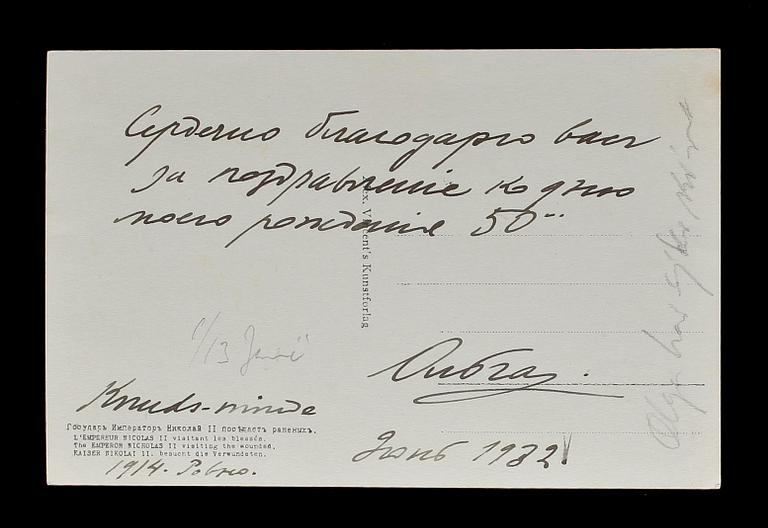 Сердечно благодарю васъ
за поздравленіе ко дню
моего рожденія 50-
Alex. Vincent's Kunstforlag
1/13 Juni
Ольга.
Knuds-minde
Государь Императоръ Николай II посѣщаетъ раненыхъ.
L'EMPEREUR NICOLAS II visitant les blessés.
The EMPEROR NICHOLAS II visiting the wounded.
KAISER NIKOLAI II. besucht die Verwundeten.
1914. Ровно.
Јюнь 1932
Olga